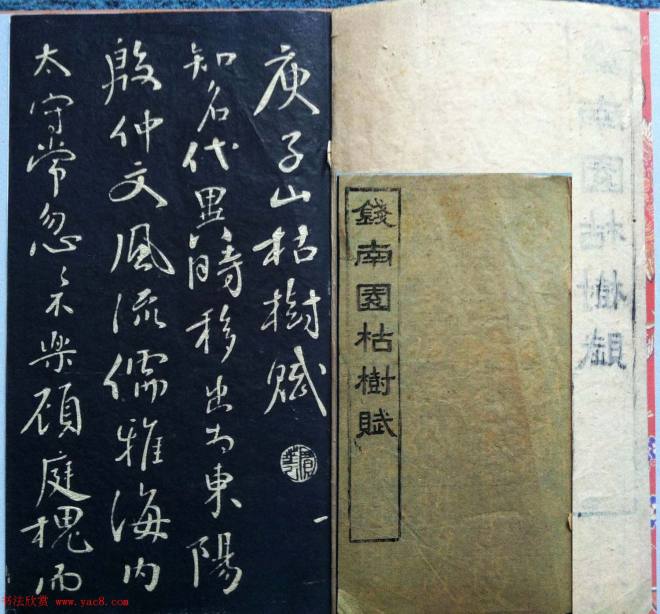 錢南園枯樹賦
庾子山枯樹賦
知名代異時移出為東陽
殷仲文風流儒雅海内
太守常忽〻不樂顧庭槐而
一
书法欣赏 www.yac8.com